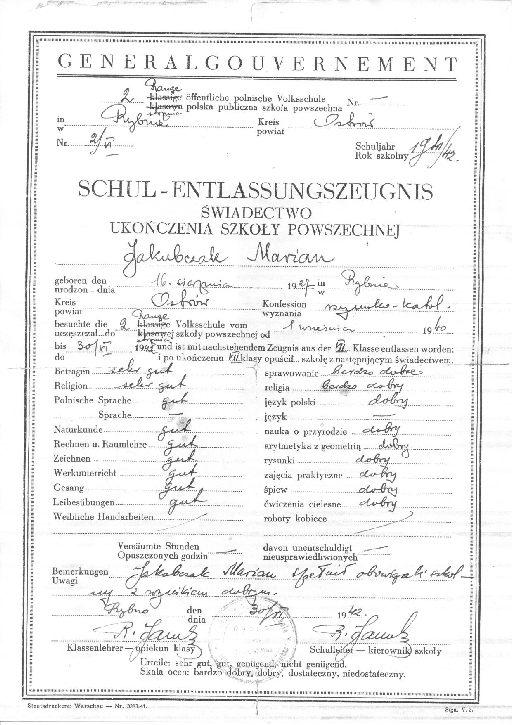 GENERALGOUVERNEMENT
2 Range klassige öffentliche polnische Volksschule Nr. —
klasowa polska publiczna szkoła powszechna
in w Rybnie Kreis powiat Ostrów
Nr. 2/VI Schuljahr Rok szkolny 1941/42.
SCHUL-ENTLASSUNGSZEUGNIS
ŚWIADECTWO
UKOŃCZENIA SZKOŁY POWSZECHNEJ
Jakubczak Marian
geboren den urodzon dnia 16. sierpnia 1927 in w Rybnie
Kreis powiat Ostrów Konfession wyznania rzymsko-katol.
besuchte die 2 Range klassige Volksschule vom
uczęszczał do klasowej szkoły powszechnej od 1 września 1940
bis 30/VI 1942 und ist mit nachstehendem Zeugnis aus der VII Klasse entlassen worden:
do i po ukończeniu VII klasy opuścił szkołę z następującym świadectwem.
Betragen sehr gut sprawowanie bardzo dobre
Religion sehr gut religia bardzo dobry
Polnische Sprache gut język polski dobry
Sprache — język —
Naturkunde gut nauka o przyrodzie dobry
Rechnen u. Raumlehre gut arytmetyka z geometrią dobry
Zeichnen gut rysunki dobry
Werkunterricht gut zajęcia praktyczne dobry
Gesang gut śpiew dobry
Leibesübungen gut ćwiczenia cielesne dobry
Weibliche Handarbeiten roboty kobiece
Versäumte Stunden davon unentschuldigt
Opuszczonych godzin — nieusprawiedliwionych —
Bemerkungen Uwagi Jakubczak Marian spełnił obowiązek szkol-
ny z wynikiem dobrym.
Rybno den dnia 30/VI 1942.
Klassenlehrer — opiekun klasy Schulleiter — kierownik szkoły
Urteile: sehr gut, gut, genügend, nicht genügend.
Skala ocen: bardzo dobry, dobry, dostateczny, niedostateczny.
Staatsdruckerei Warschau — Nr.